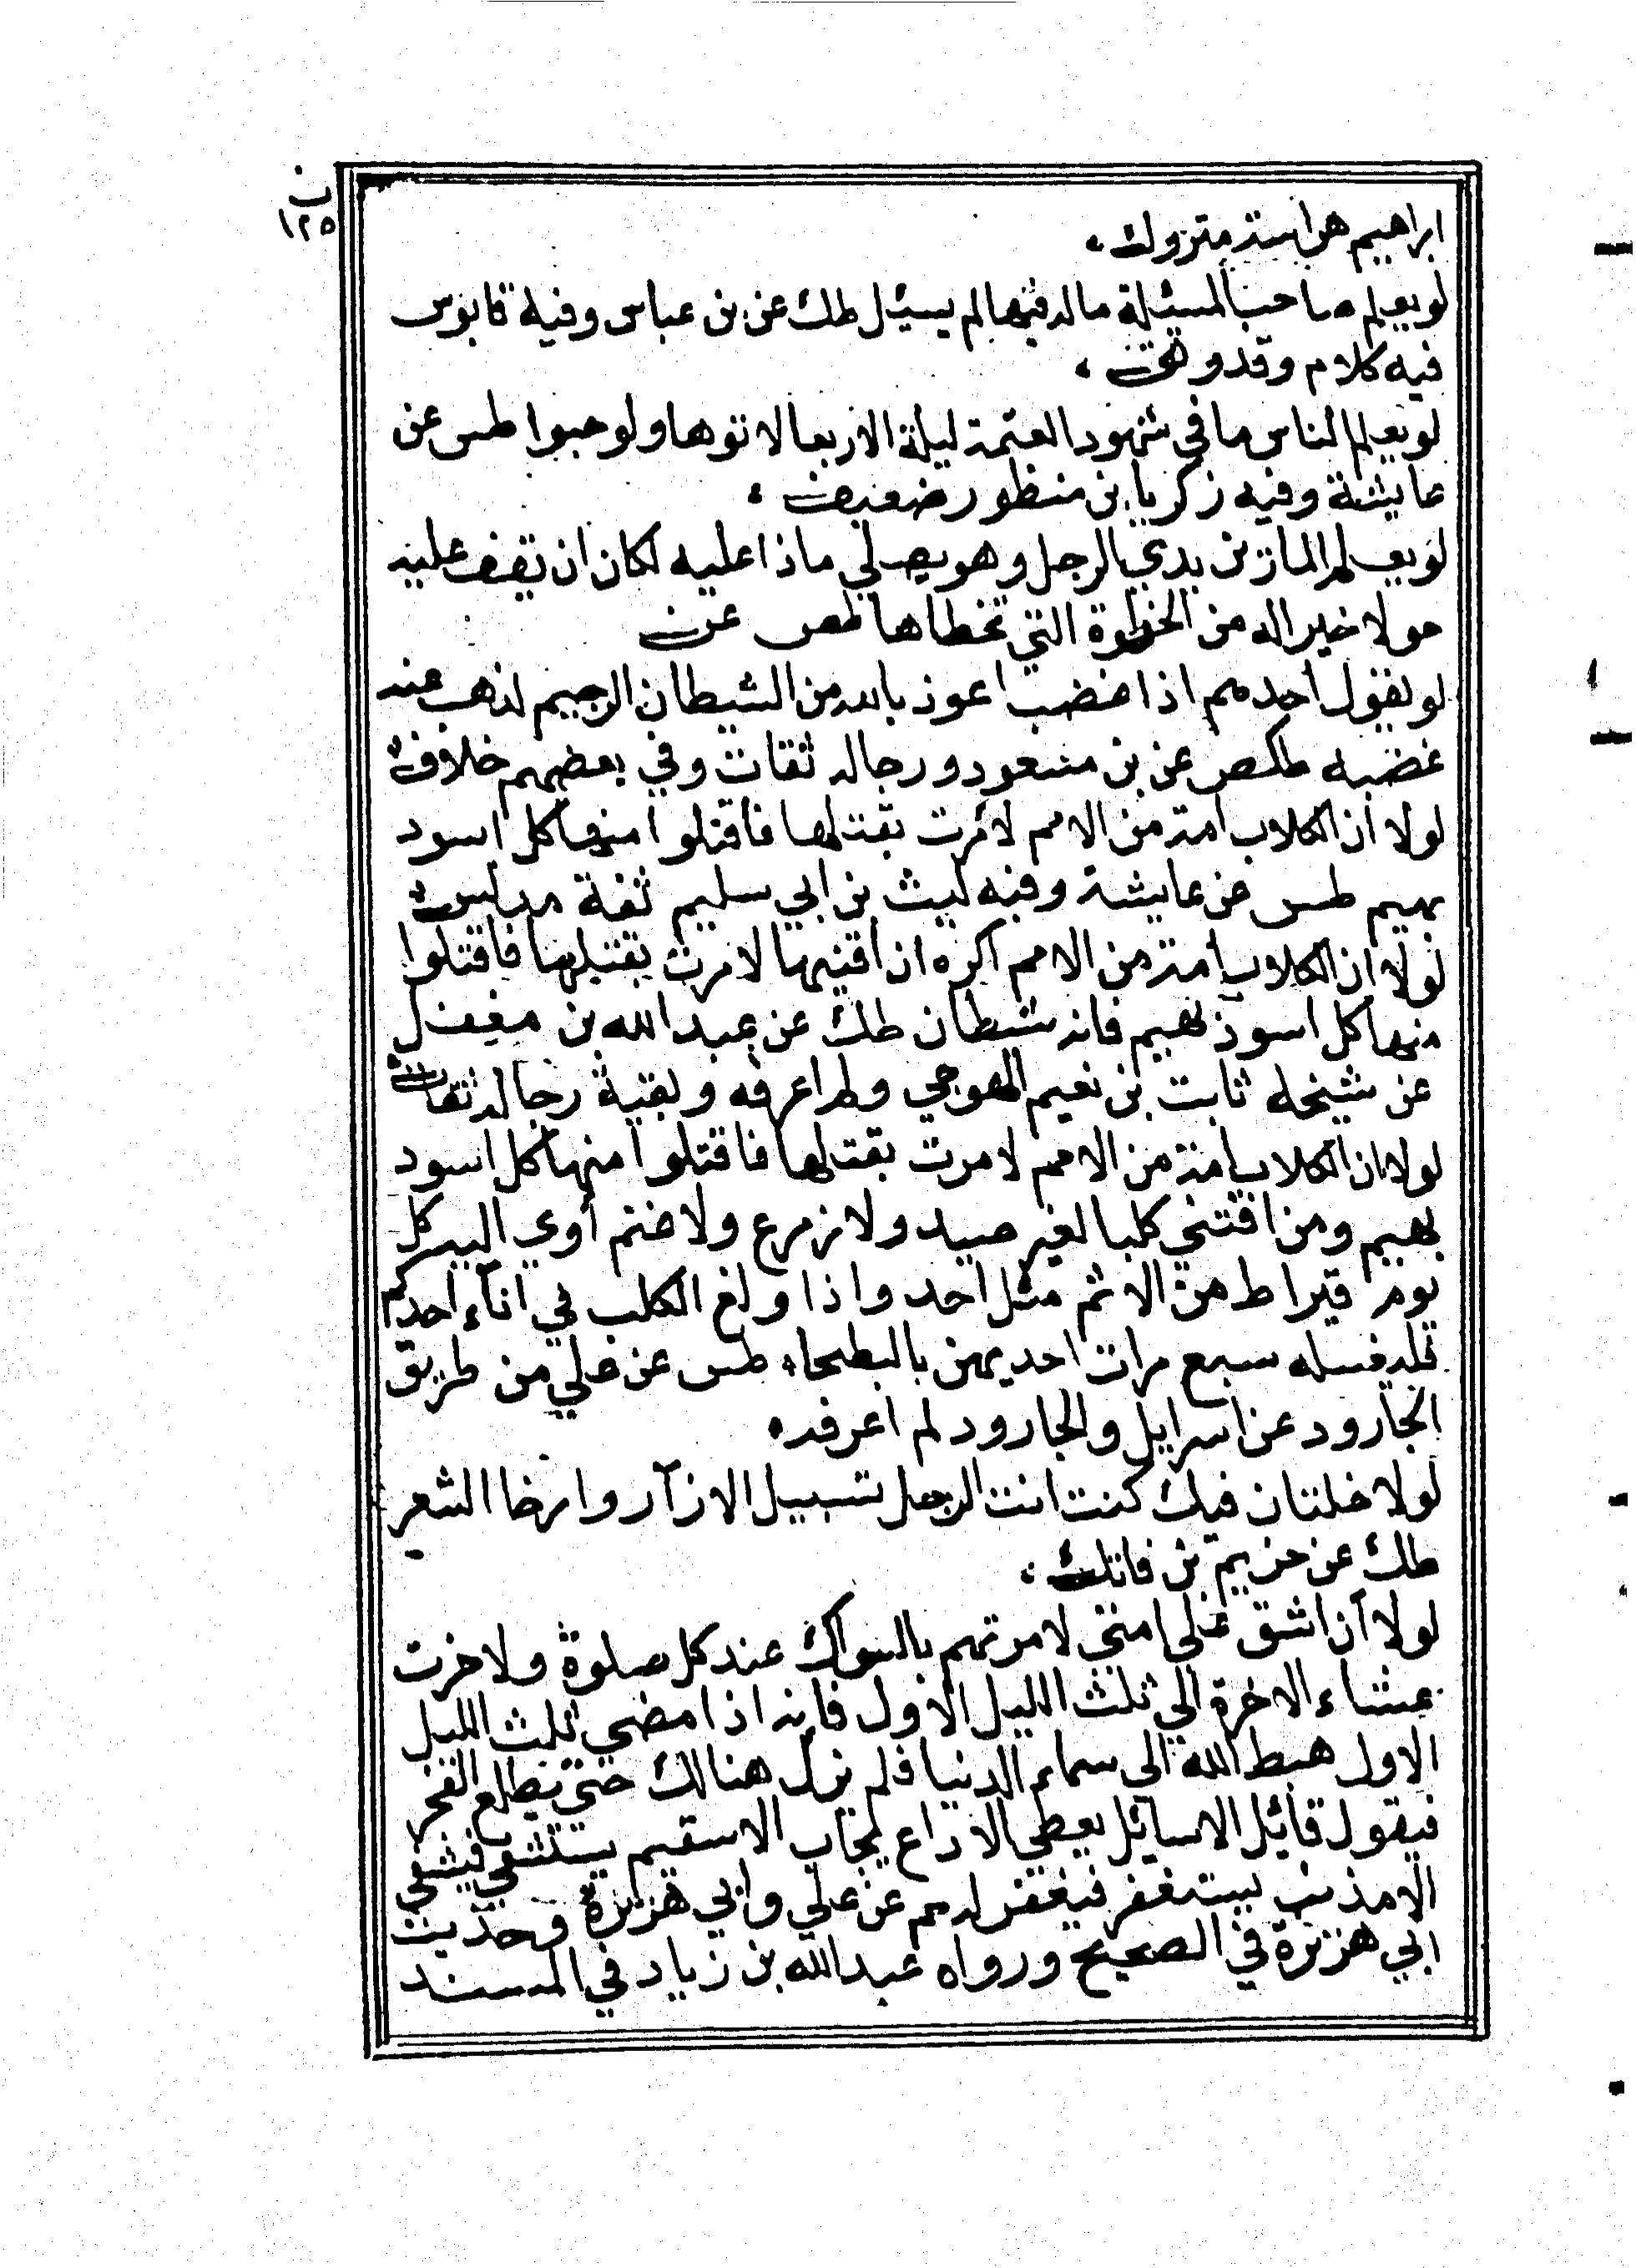 ن
١٢٥
ابراهيم هراسة متروك،
لو يعلم صاحب المسئلة ماله فيها لم يسئل طك عن بن عباس وفيه قابوس
فيه كلام وقد وثق،
لو يعلم الناس ما في شهود العتمة ليلة الاربعا لاتوها ولو حبوا طس عن
عايشة وفيه زكريا بن منظور ضعيف،
لو يعلم المار بن يدي الرجل وهو يصلي ماذا عليه لكان ان يقف عليه
حولا خير اله من الخطوة التي تخطاها طص عن
لو يقول احدهم اذا غضب اعوذ بالله من الشيطان الرجيم لذهب عنه
غضبه طكص عن بن مسعود ورجاله ثقات وفي بعضهم خلاف
لولا ان الكلاب امة من الامم لامرت بقتلها فاقتلوا منها كل اسود
بهيم طس عن عايشة وفيه ليث بن ابي سليم ثقة مدلس
لولا ان الكلاب امة من الامم اكره ان افنيها لامرت بقتلها فاقتلوا
منها كل اسود بهيم فانه شيطان طك عن عبد الله بن مغفل
عن شيخه ثابت بن نعيم الهوجي ولم اعرفه وبقية رجاله ثقات
لولا ان الكلاب امة من الامم لامرت بقتلها فاقتلوا منها كل اسود
بهيم ومن اقتني كلبا لغير صيد ولا زرع ولا غنم أوي اليه كل
يوم قيراط من الاثم مثل احد واذا ولغ الكلب في اناء احدكم
فليغسله سبع مرات احديهن بالبطحاء طس عن علي من طريق
الجارود عن اسرايل والجارود لم اعرفه
لولا خلتان فيك كنت انت الرجل تسبيل الازار وارخا الشعر
طك عن خريم بن فاتك،
لولا أن اشق علي امتي لامرتهم بالسواك عند كل صلوة ولاخرت
عشاء الاخرة الي ثلث الليل الاول فانه اذا مضي ثلث الليل
الاول هبط الله الى سماء الدنيا فلم يزل هنالك حتي يطلع الفجر
فيقول قائل الاسائل يعطي الاداع يجاب الاسقيم يستشفي فيشفي
الامذنب يستغفر فيغفر له عم عن علي وابي هريرة وحديث
ابي هريرة في الصحيح ورواه عبد الله بن زياد في المسند